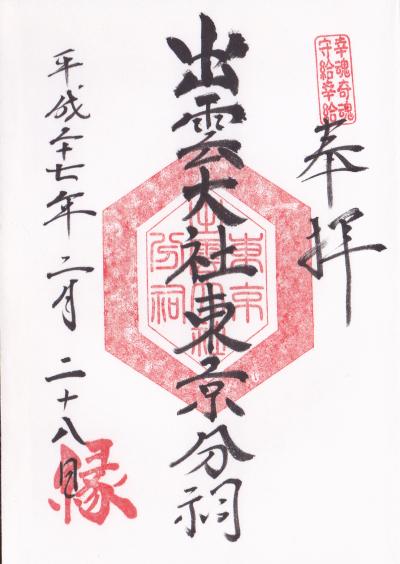 幸魂奇魂
守給幸給
奉拝
出雲大社東京分祠
東京
出雲大社
分祠
平成二十七年二月二十八日
縁